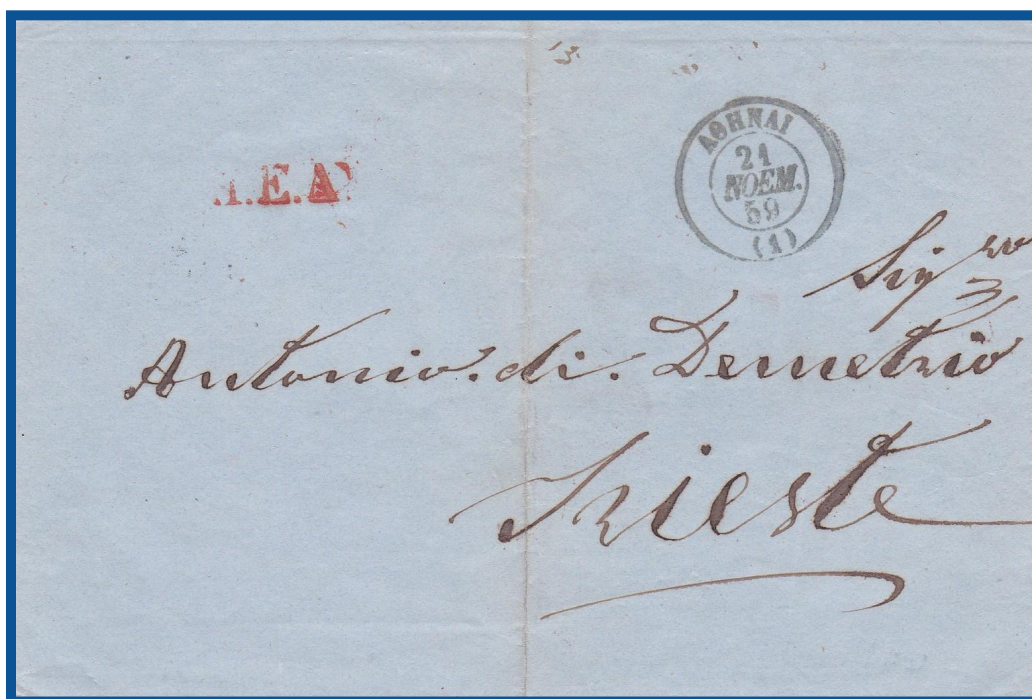 ΑΘΗΝΑΙ
21
ΝΟΕΜ.
59
(1)
.E.A
Sig^re
Antonio. di. Demetrio
Trieste